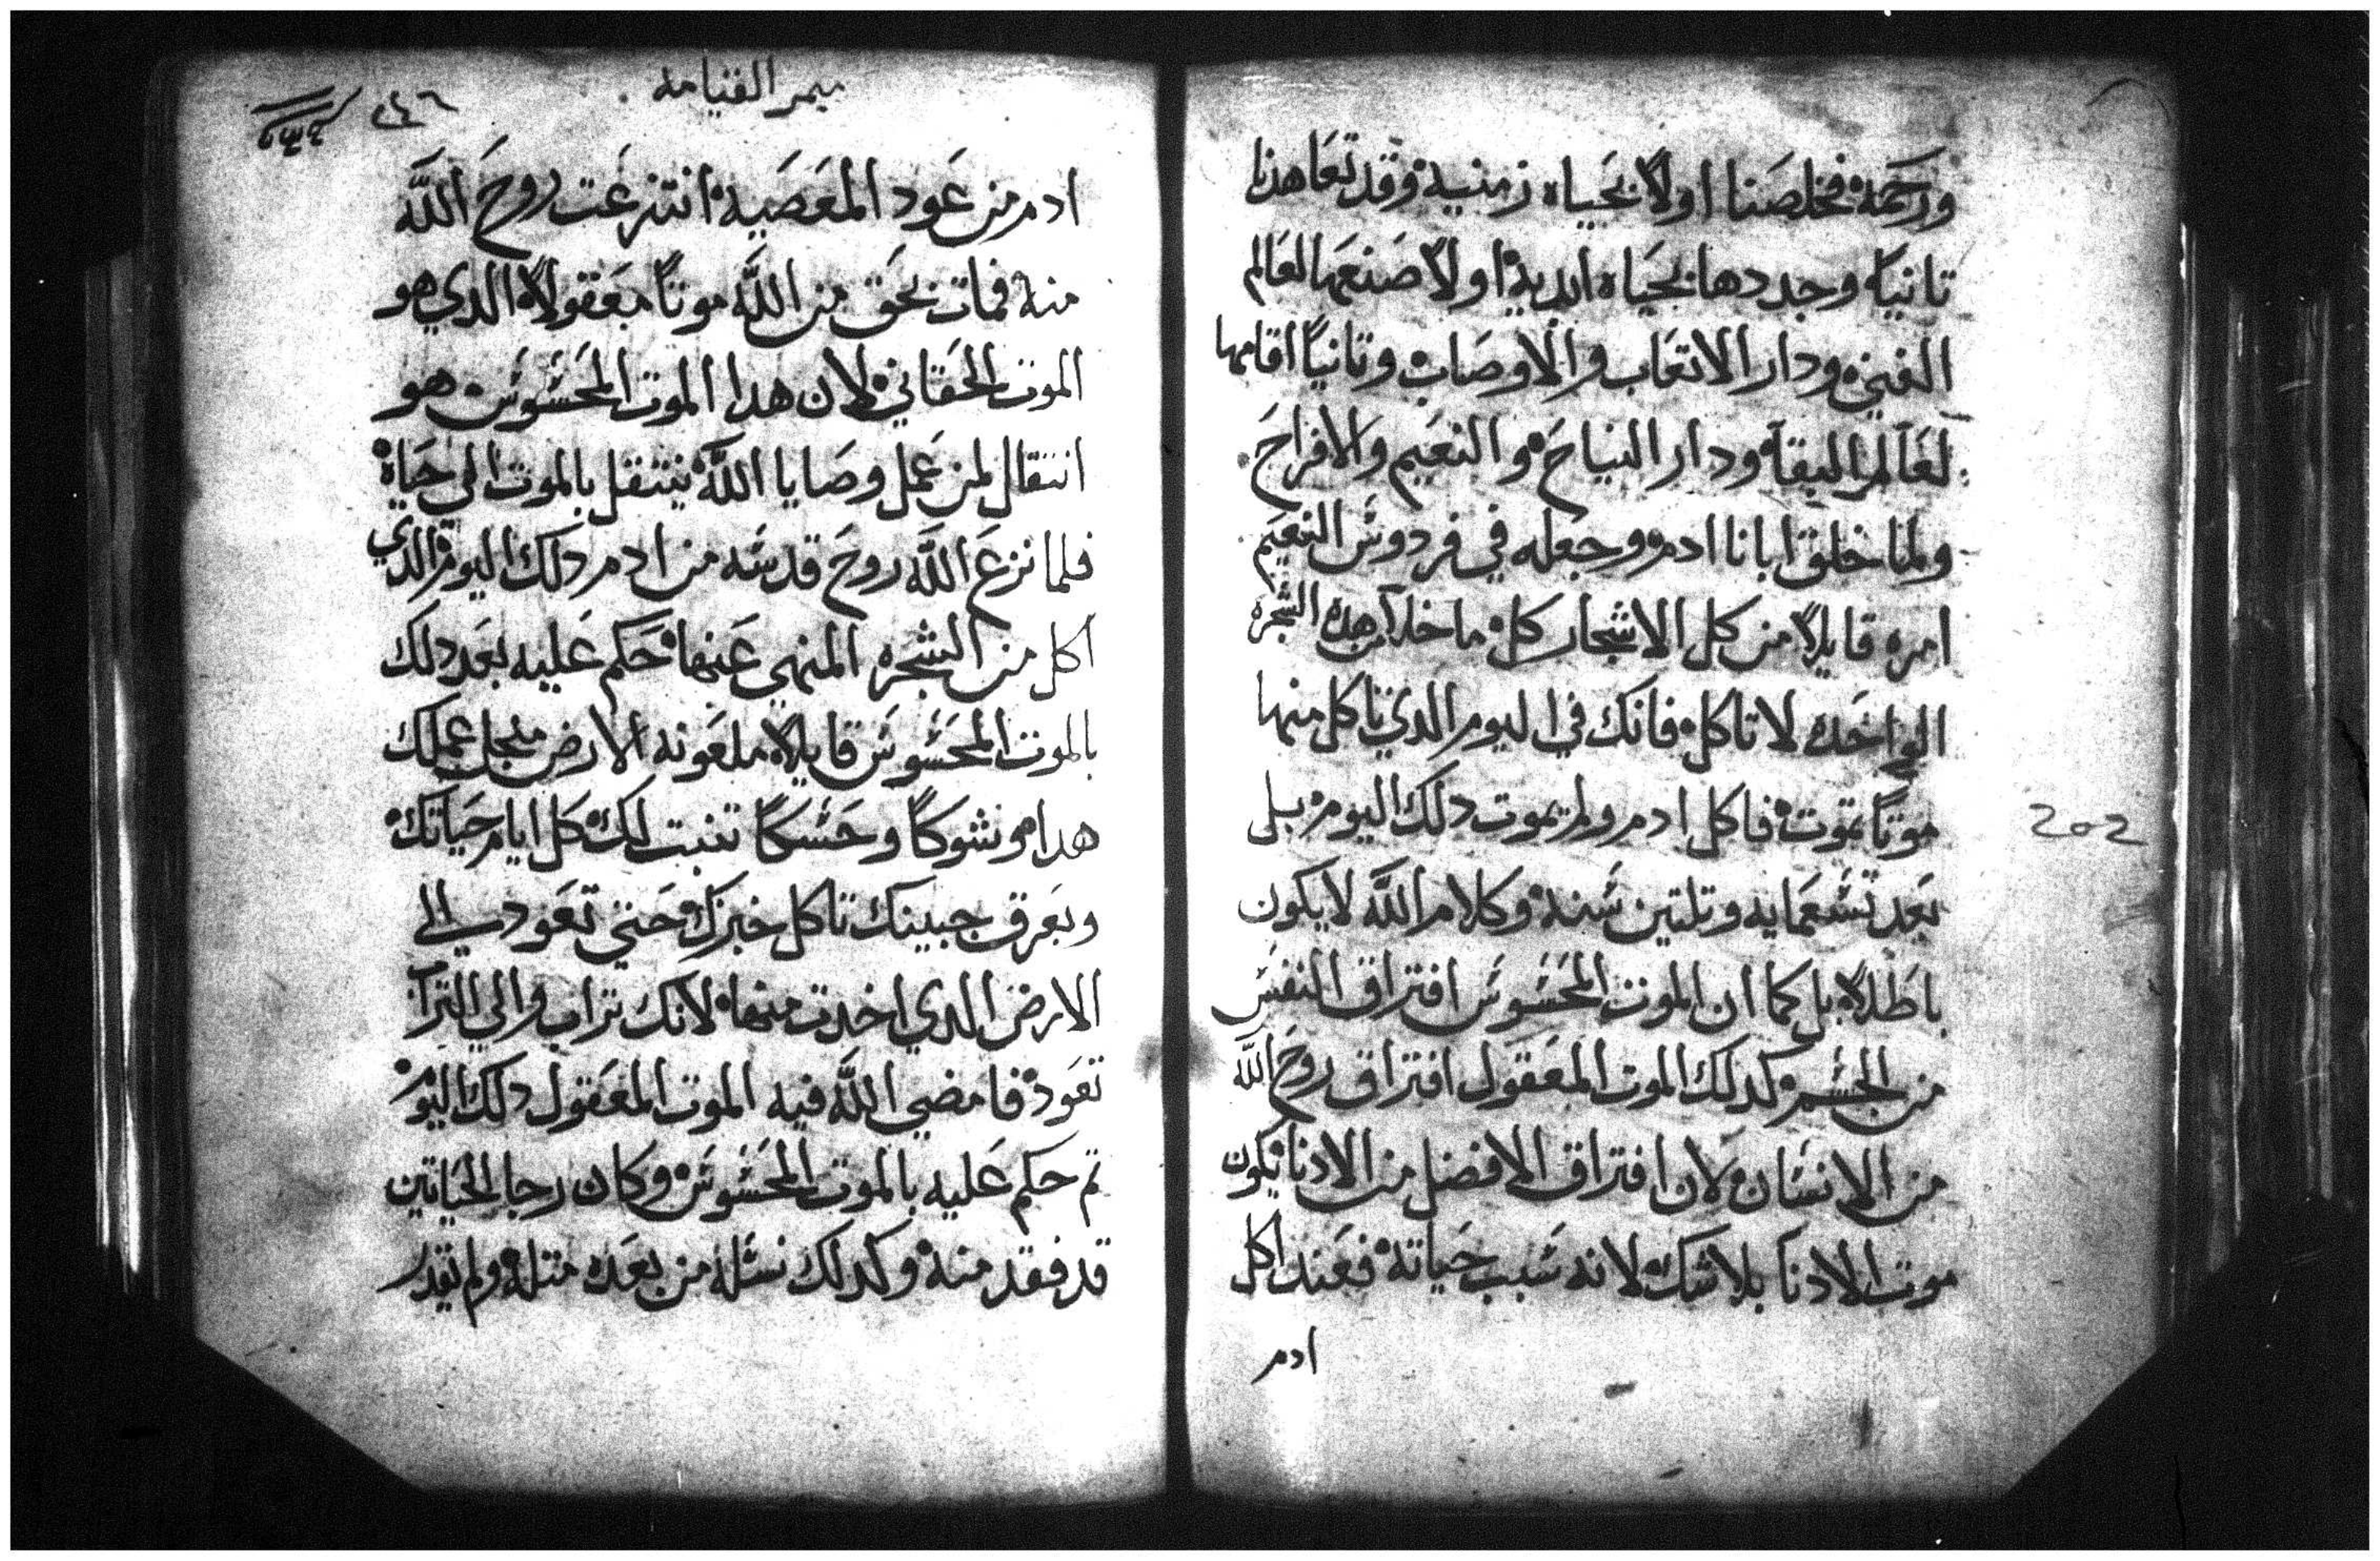 ورحمة فخلصنا اولاً بحياه زمنيه وقد تعاهدنا
تانياً وجددها بحياه ابدية اولاً صنعها لعالم
الفني ودار الاتعاب والاوصاب وتانياً اقامها
لعالم البقآ ودار النياح والنعيم والافراح
ولما خلق ابانا ادم وجعله في فردوس النعيم
امره قايلاً من كل الاشجار كل ما خلا من هده الشجره
الواحده لا تاكل فانك في اليوم الدي تاكل منها
موتاً تموت فاكل ادم ولم يموت دلك اليوم بل
بعد تسعمايه وتلتين سنه وكلام الله لا يكون
باطلاً بل كما ان الموت المحسوس افتراق النفس
من الجسم كدلك الموت المعقول افتراق روح الله
من الانسان لان افتراق الافضل من الادنا يكون
موت الادنا بلا شك لانه سبب حياته فعند اكل
ادم
202
ميمر القيامه
٢٤٦
ادم من عود المعصيه انتزعت روح الله
منه فمات بحق من الله موتاً معقولاً الدي هو
الموت الحقاني لان هدا الموت المحسوس هو
انتقال لمن عمل وصايا الله ينتقل بالموت الى حياه
فلما نزع الله روح قدسه من ادم دلك اليوم الدي
اكل من الشجره المنهي عنها حكم عليه بعد دلك
بالموت المحسوس قايلاً ملعونه الارض منجل عملك
هدا وشوكاً وحسكاً تنبت لك كل ايام حياتك
وبعرق جبينك تاكل خبزك حتي تعود الي
الارض الدي اخدت منها لانك تراب والي التراب
تعود فامضي الله فيه الموت المعقول دلك اليوم
تم حكم عليه بالموت المحسوس وكان رجا الحياتين
قد فقد منه وكدلك نسله من بعده متله ولم يقدر